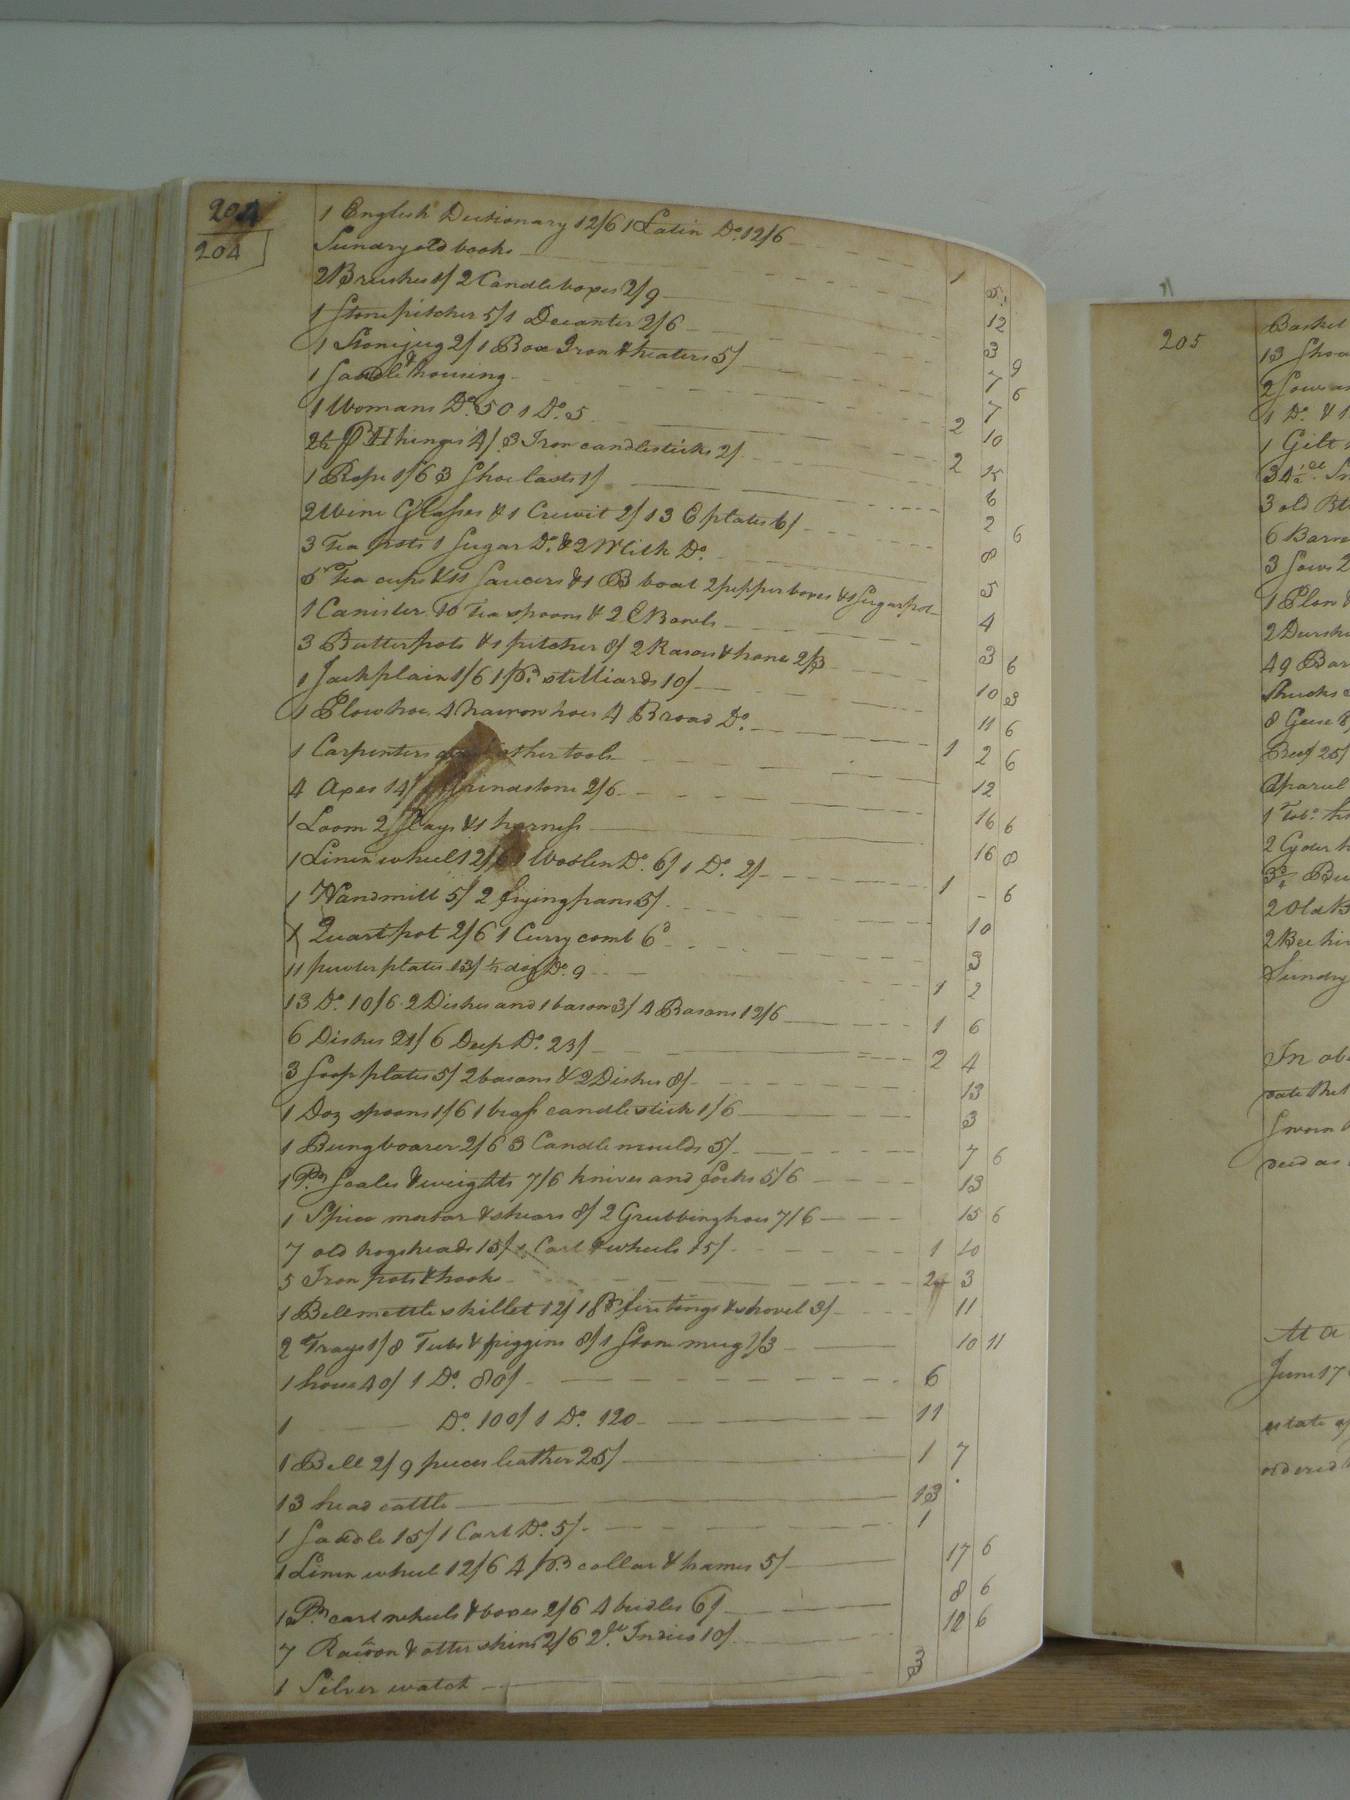 204
204
1 English Dictionary 12/6 1 Latin Do. 12/6 1 5
Sundry old books 12
2 Brushes 1/ 2 Candleboxes 2/9 3 9
1 Stone pitcher 5/ 1 Decanter 2/6 7 6
1 Stone jug 2/ 1 Box Iron & heaters 5/ 7
1 Saddle & housing 2 10
1 Womans Do. 50 1 Do. 5 2 15
2 1/2 pr H hinges 4/ 3 Iron candlesticks 2/ 6
1 Rope 1/6 3 Shoe lasts 1/ 2 6
2 Wine Glasses & 1 Crewit 2/ 13 E plates 6/ 8
3 Tea pots 1 Sugar Do. & 2 Milk Do. 5
6 Tea cups & 11 Saucers & 1 B boat 2 pepper boxes & 1 Sugar pot 4
1 Canister 10 Tea spoons & 2 E Bowls 3 6
3 Butter pots & 1 pitcher 8/ 2 Rasors & hone 2/3 10 3
1 Jack plain 1/6 1 pr. stilliards 10/ 11 6
1 Plow hoe 4 narrow hoes 4 Broad Do. 1 2 6
1 Carpenters other tools 12
4 Axes 14/ Grindstone 2/6 16 6
1 Loom 2 Slays & 1 harness 16 8
1 Linen wheel 12/6 1 Woolen Do. 6/ 1 Do. 2/ 1 - 6
1 Handmill 5/ 2 frying pans 5/ 10
1 Quart pot 2/6 1 Curry comb 6d 3
11 pewter plates 13/ 1/2 doz Do. 9 1 2
13 Do. 10/6 2 Dishes and 1 bason 3/ 4 Basons 12/6 1 6
6 Dishes 21/ 6 Deep Do. 23/ 2 4
3 Soop plates 5/ 2 basons & 2 Dishes 8/ 13
1 Doz spoons 1/6 1 brass candlestick 1/6 3
1 Bungboarer 2/6 3 Candlemoulds 5/ 7 6
1 Pr. Scales & weights 7/6 knives and forks 5/6 13
1 Spice mortar & shears 8/ 2 Grubbing hoes 7/6 15 6
7 old hogsheads 15/ 1 Cart & wheels 15/ 1 10
5 Iron pots & hooks 2 3
1 Bellmettle skillet 12/ 1 pr fire tongs & shovel 3/ 11
2 Trays 1/8 Tubs & piggins 8/ 1 Stone mug 1/3 10 11
1 horse 40/ 1 Do. 80/ 6
1 Do. 100/ 1 Do. 120 11
1 Bell 2/ 9 pieces leather 25/ 1 7
13 head cattle 13
1 Saddle 15/ 1 Cart Do. 5/ 1
1 Linen wheel 12/6 4 pr collar & hames 5/ 17 6
1 Pr. cart wheels & boxes 2/6 4 bridles 6/ 8 6
7 Racoon & otter skins 2/6 2 Indico 10/ 12 6
1 Silver watch 3
205
Basket
13
2 Sows
1 Do. & 1
1 Gilt
3 old
6 Barre
3 Sows 2
1 Plow &
2
49 Bar
Shucks
8 Geese
Beef 25/
Aparel
1
2 Cyder
2 Old B
2 Bee hi
Sundry
In ob
Sworn
At a
June 17
estate of
ordered